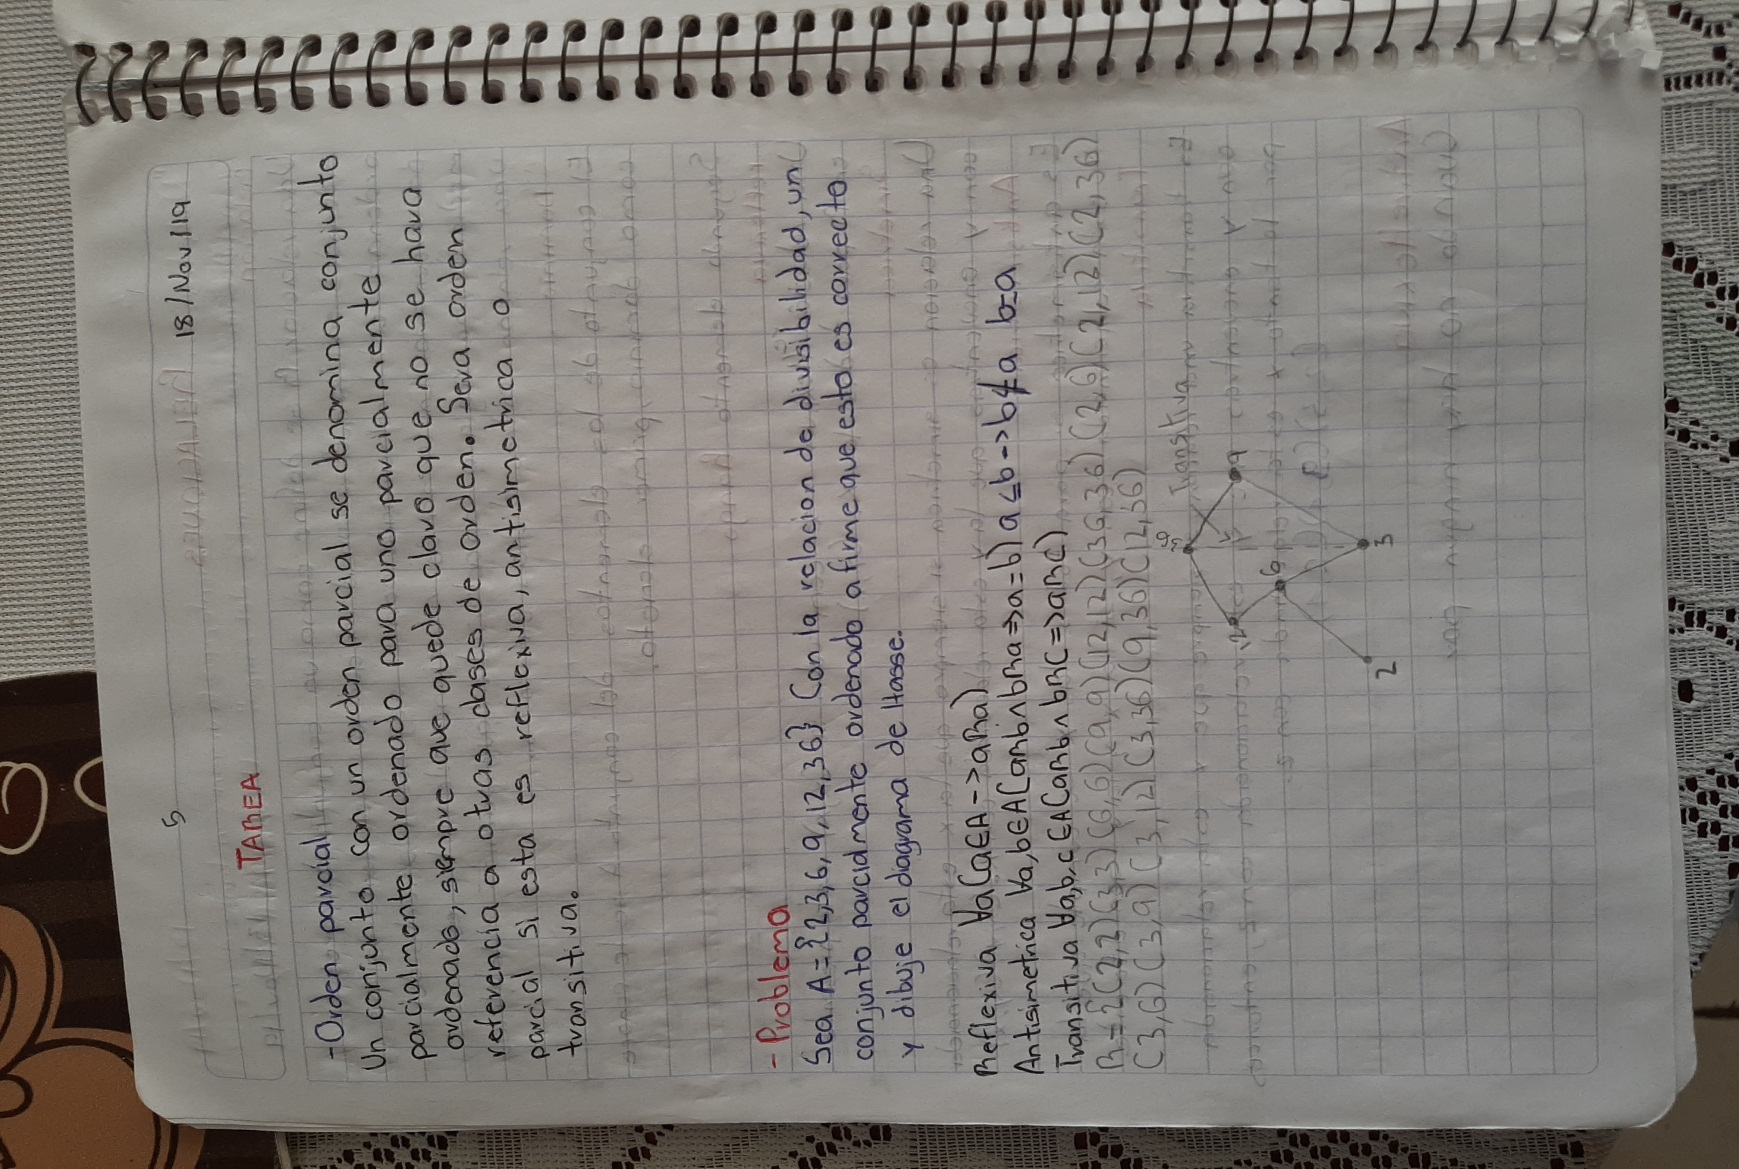 5 18/Nov/19
TAREA
-Orden parcial
Un conjunto con un orden parcial se denomina conjunto
parcialmente ordenado para uno parcialmente
ordenado, siempre que quede claro que no se hara
referencia a otras clases de orden. Sera orden
parcial si esta es reflexiva, antisimetrica o
transitiva.
-Problema
Sea A={2,3,6,9,12,36} Con la relacion de divisibilidad, un
conjunto parcialmente ordenado afirme que esto es correcto
y dibuje el diagrama de Hasse.
Reflexiva ∀a(a∈A->aRa)
Antisimetrica ∀a,b∈A(aRb∧bRa⇒a=b) a≤b->b≠a b≥a
Transitiva ∀a,b,c∈A(aRb∧bRc=>aRc)
R={(2,2)(3,3)(6,6)(9,9)(12,12)(36,36)(2,6)(2,12)(2,36)
(3,6)(3,9)(3,12)(3,36)(9,36)(12,36)
Transitiva
36
12 9
6
2 3